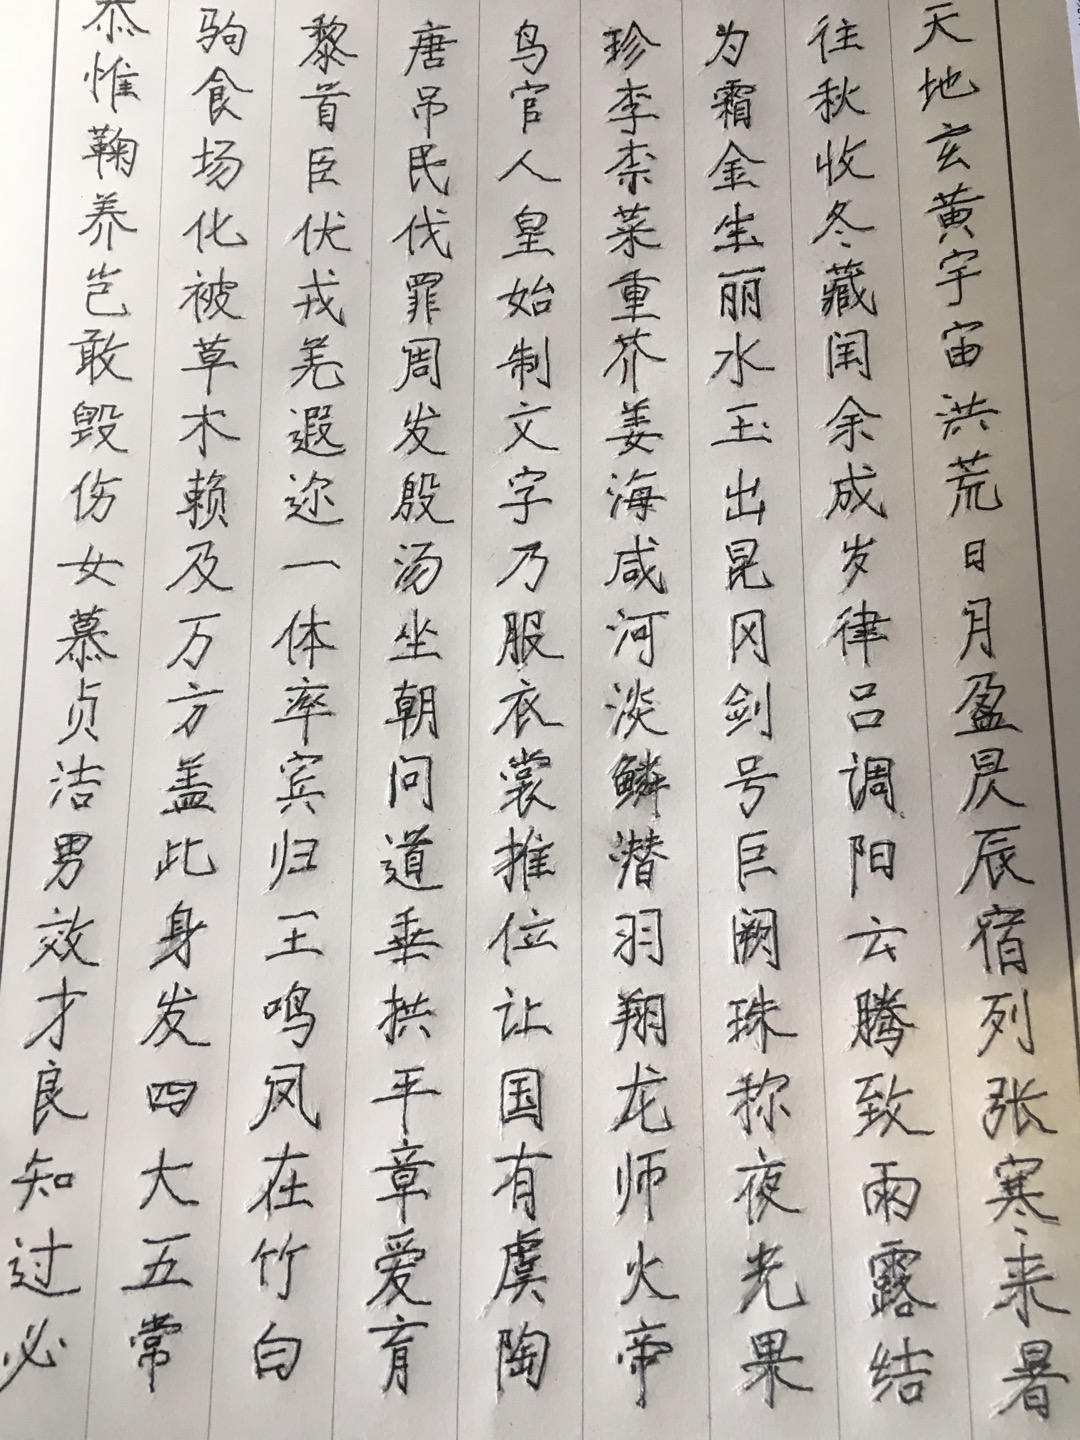 天地玄黄宇宙洪荒日月盈昃辰宿列张寒来暑
往秋收冬藏闰余成岁律吕调阳云腾致雨露结
为霜金生丽水玉出昆冈剑号巨阙珠称夜光果
珍李柰菜重芥姜海咸河淡鳞潜羽翔龙师火帝
鸟官人皇始制文字乃服衣裳推位让国有虞陶
唐吊民伐罪周发殷汤坐朝问道垂拱平章爱育
黎首臣伏戎羌遐迩一体率宾归王鸣凤在竹白
驹食场化被草木赖及万方盖此身发四大五常
恭惟鞠养岂敢毁伤女慕贞洁男效才良知过必